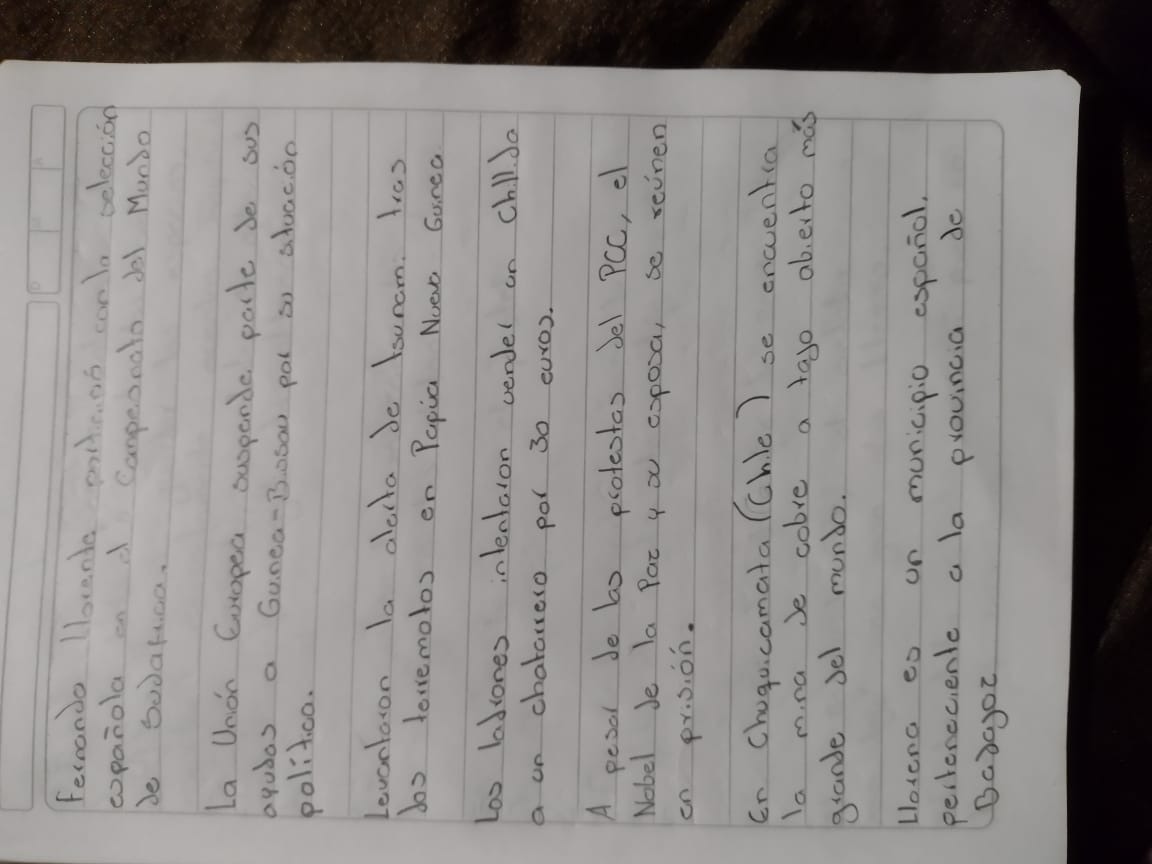 Fernando Llorente participó con la selección
española en el Campeonato del Mundo
de Sudáfrica.
La Unión Europea suspende parte de sus
ayudas a Guinea-Bissau por su situación
política.
Levantaron la alerta de tsunami tras
dos terremotos en Papúa Nueva Guinea
Los ladrones intentaron vender un Chillida
a un chatarrero por 30 euros.
A pesar de las protestas del PCC, el
Nobel de la Paz y su esposa, se reúnen
en prisión.
En Chuquicamata (Chile) se encuentra
la mina de cobre a tajo abierto más
grande del mundo.
Llerena es un municipio español,
perteneciente a la provincia de
Badajoz